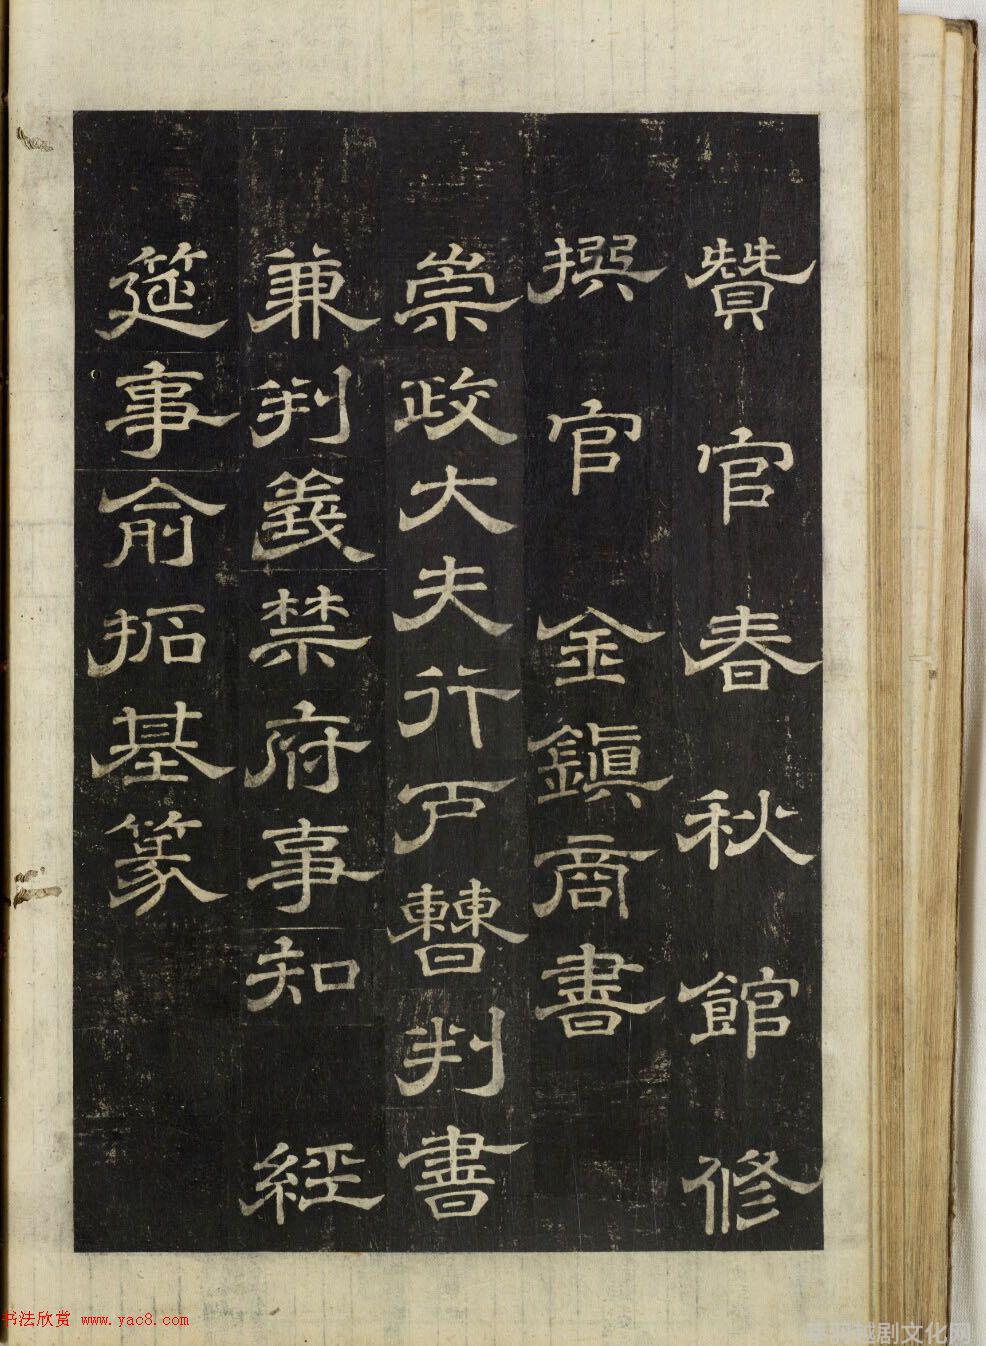 贊官春秋館修
撰官金鎮商書
崇政大夫行戶曹判書
兼判義禁府事知 經
筵事俞拓基篆
书法欣赏 www.yac8.com
越剧文化网